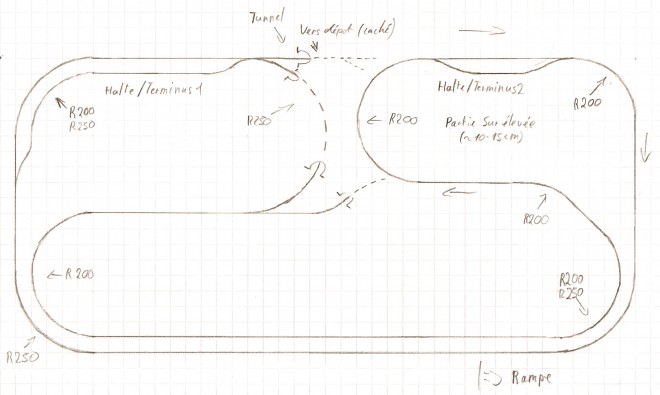 Tunnel
Vers dépot (caché)
Halte/Terminus1
R200
R250
R250
R200
Halte/Terminus2
R200
Partie Surélevée
(~10-15cm)
R200
R200
R200
R250
R250
|=> Rampe